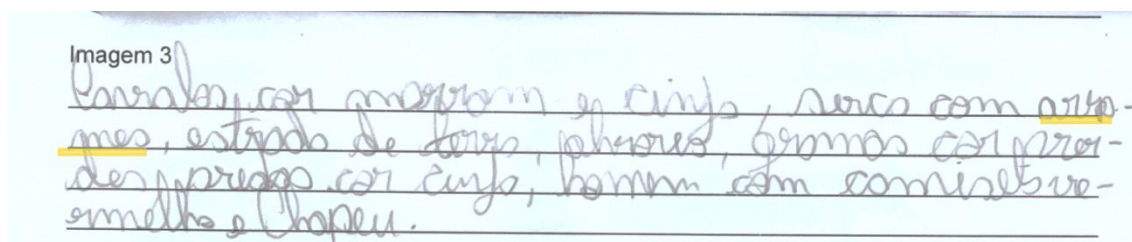 Imagem 3
Cavalos, cor marrom e cinja, serca com arra-
mes, estrada de terra, gramas cor
des, predas cor cinja, homem com camiseta ve-
ermelha e Chapeu.